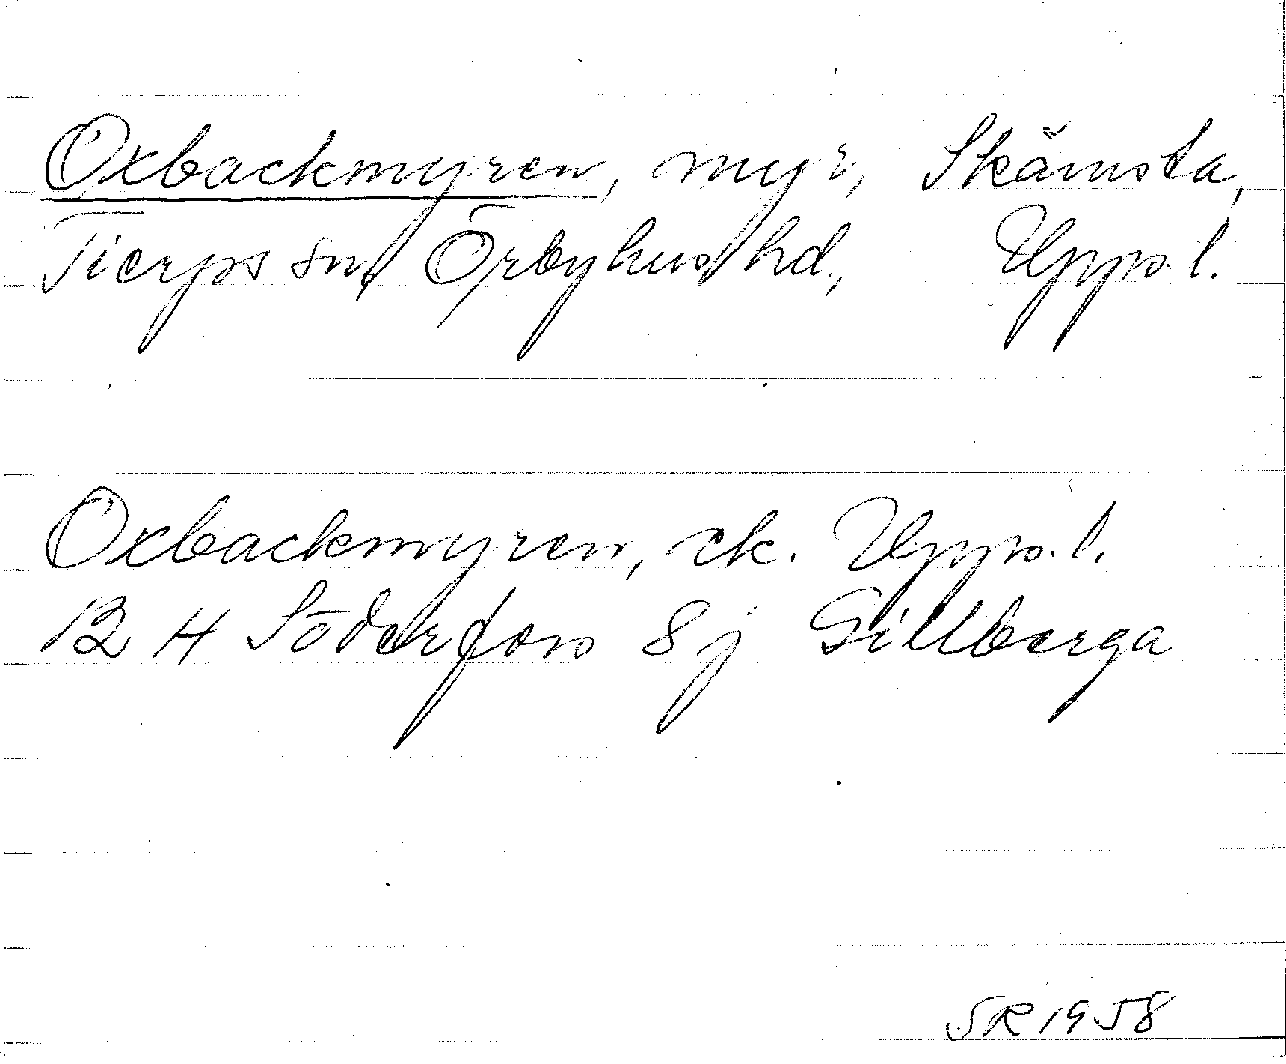 Oxbackmyren, myr, Skämsta,
Tierps sn, Örbyhus hd., Uppl.
Oxbackmyren, ek. Uppl.
12 H Söderfors 8 j Gillberga
SR 1958